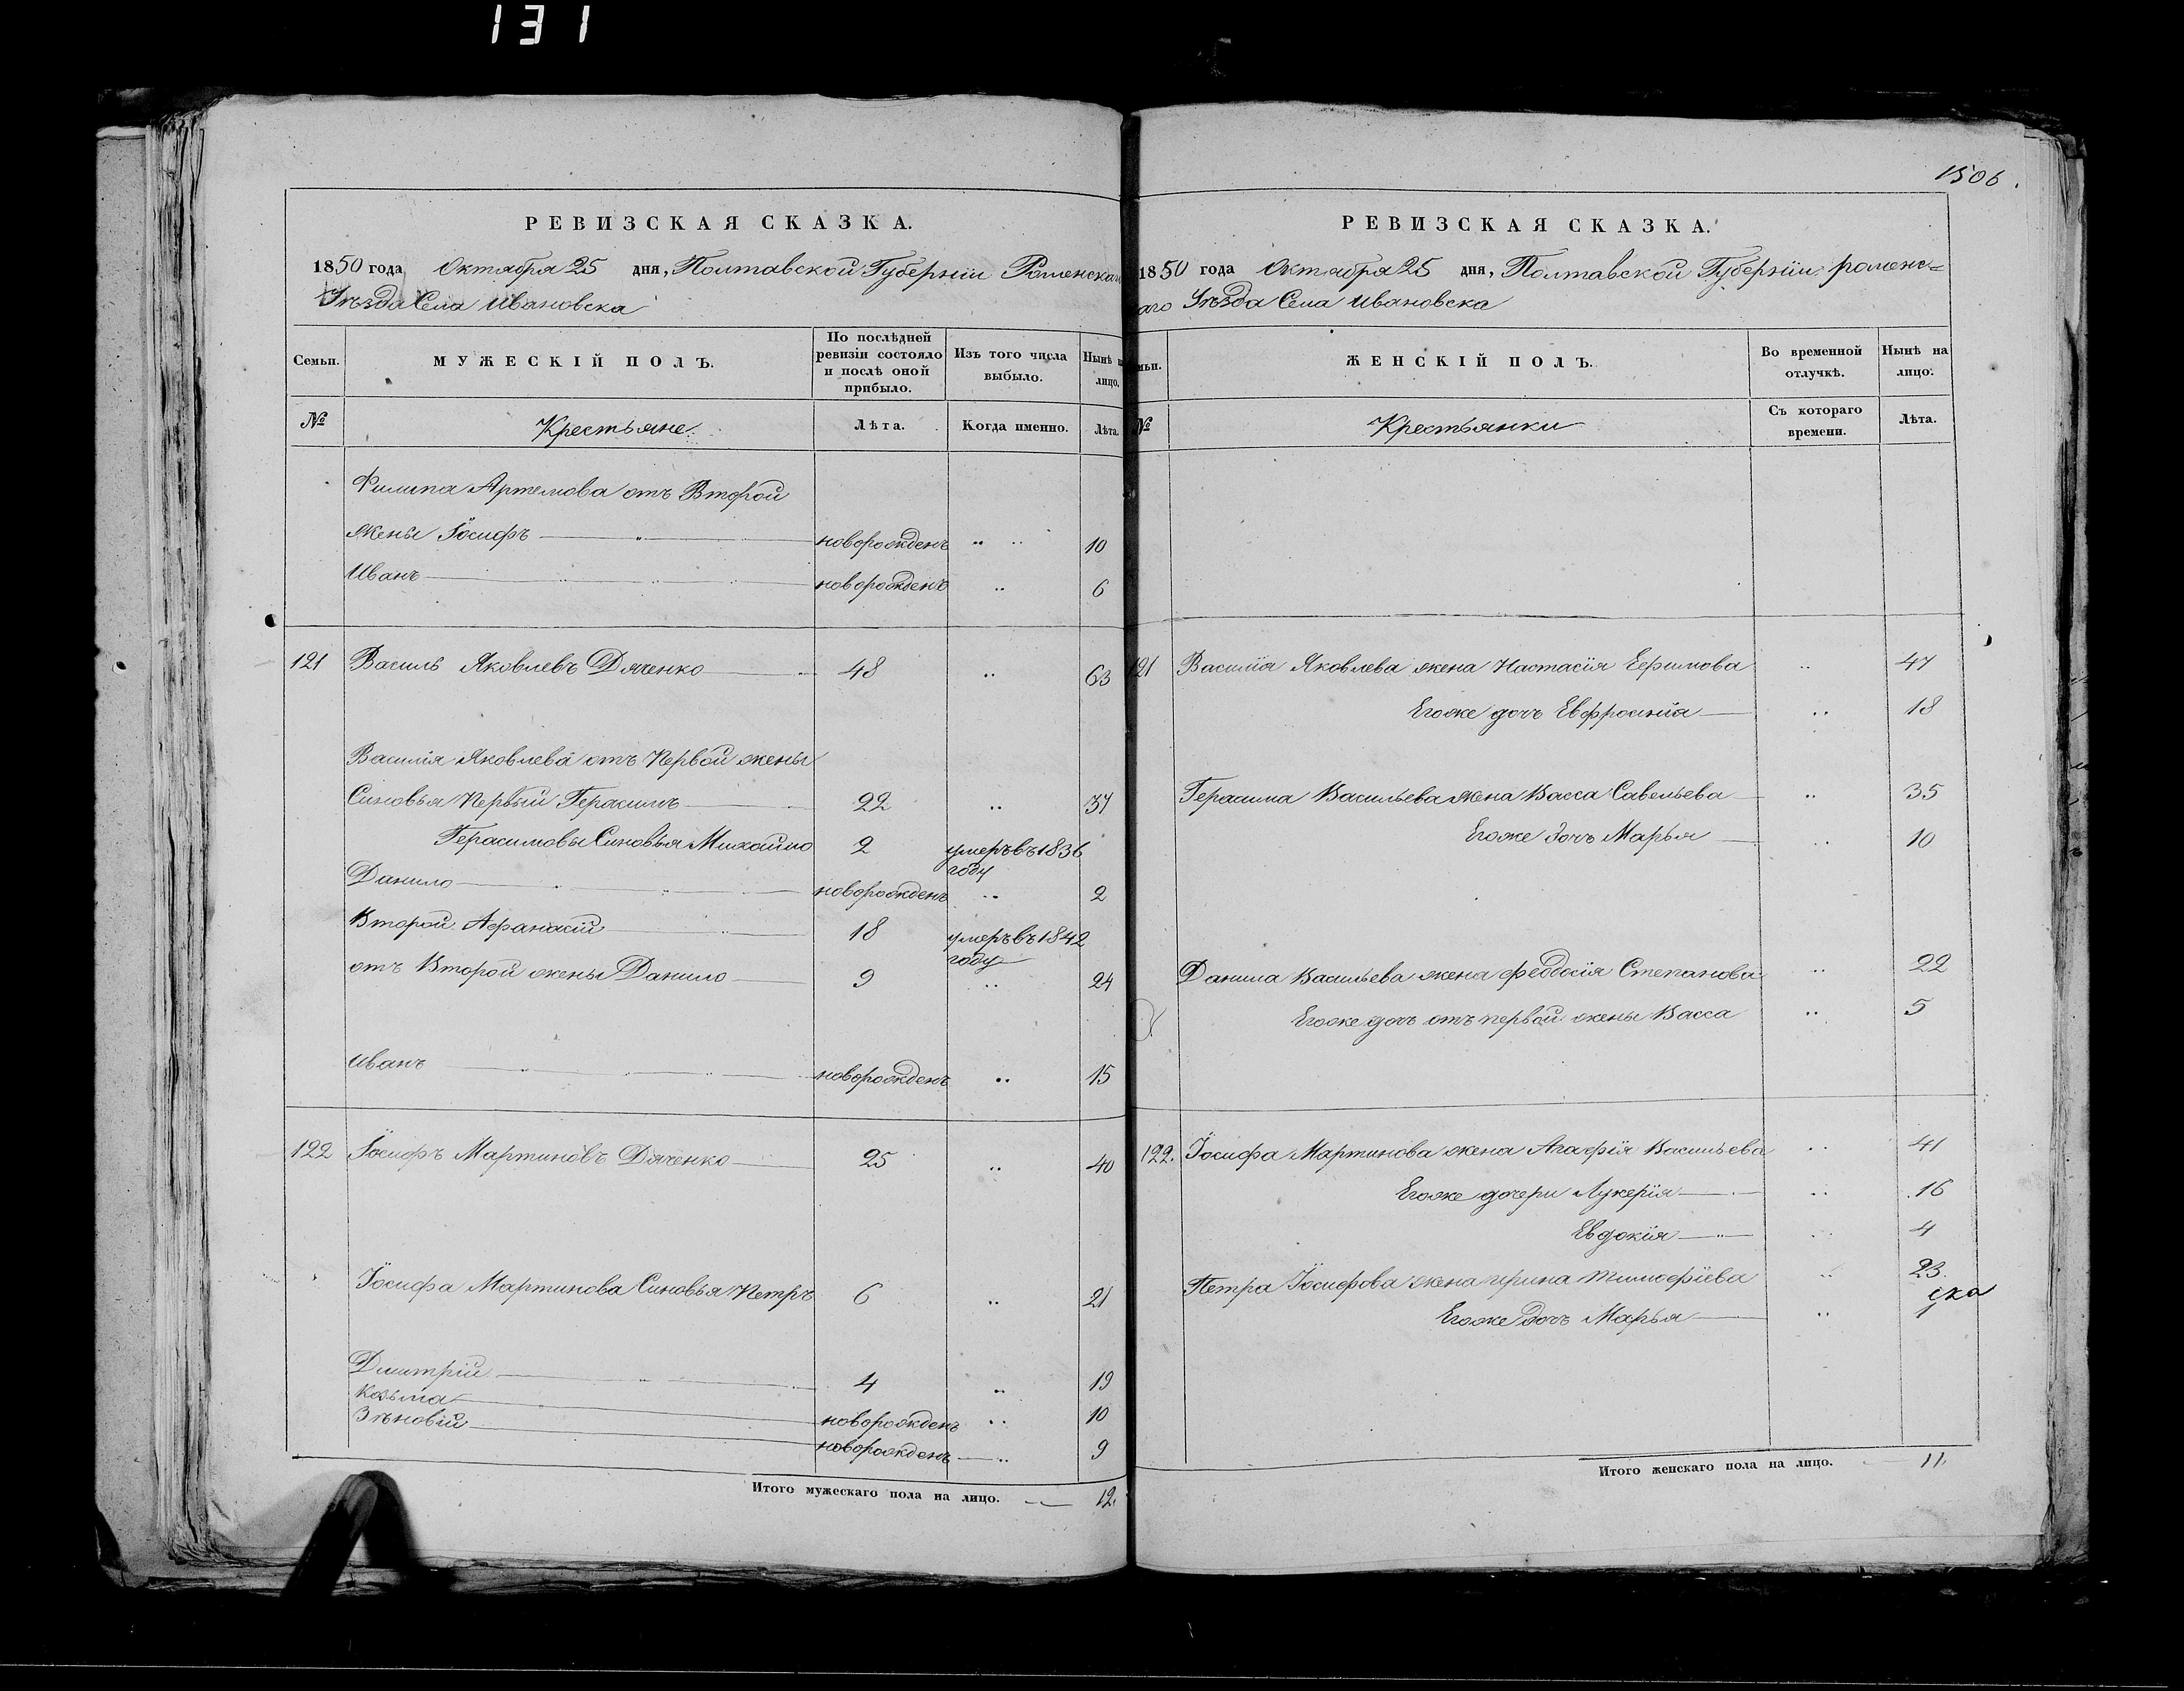 131
РЕВИЗСКАЯ СКАЗКА.
1850 года Октября 25 дня, Полтавской Губерніи Роменскаго
Уѣзда Села Ивановска
Семьи.
МУЖЕСКІЙ ПОЛЪ.
По послѣдней ревизіи состояло и послѣ оной прибыло.
Изъ того числа выбыло.
Нынѣ на лицо.
№
Крестьяне
Лѣта.
Когда именно.
Лѣта.
Филипа Артемова отъ Второй
жены Іосифъ новорожденъ 10
Иванъ новорожденъ 6
121 Василь Яковлевъ Дяченко 48 63
Василія Яковлева отъ Первой жены
Синовья Первый Герасимъ 22 37
Герасимовы Синовья Михайло 2 умеръ въ 1836 году
Данило новорожденъ 2
Второй Афанасій 18 умеръ въ 1842 году
отъ Второй жены Данило 9 24
Иванъ новорожденъ 15
122 Іосифъ Мартиновъ Дяченко 25 40
Іосифа Мартинова Синовья Петръ 6 21
Дмитрій 4 19
Козьма новорожденъ 10
Зѣновій новорожденъ 9
Итого мужескаго пола на лицо. 12.
1506.
РЕВИЗСКАЯ СКАЗКА.
1850 года Октября 25 дня, Полтавской Губерніи роменс=
аго Уѣзда Села Ивановска
мьи.
ЖЕНСКІЙ ПОЛЪ.
Во временной отлучкѣ.
Нынѣ на лицо.
№
Крестьянки
Съ котораго времени.
Лѣта.
121 Василія Яковлева жена Настасія Ефимова 47
Егоже дочь Евфросинія 18
Герасима Васильева жена Васса Савельева 35
Егоже дочь Марья 10
Данила Васильева жена Феодосія Степанова 22
Егоже дочь отъ первой жены Васса 5
122. Іосифа Мартинова жена Агафія Васильева 41
Егоже дочери Лукерія 16
Евдокія 4
Петра Іосифова жена Ирина Тимофіева 23.
Егоже дочь Марья
Итого женскаго пола на лицо. 11.